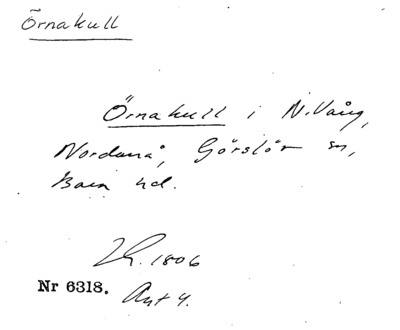 Örnakull
Örnakull i N. Vång,
Nordanå, Görslöv sn,
Bara hd.
1806
Nr 6318. Akt 4.